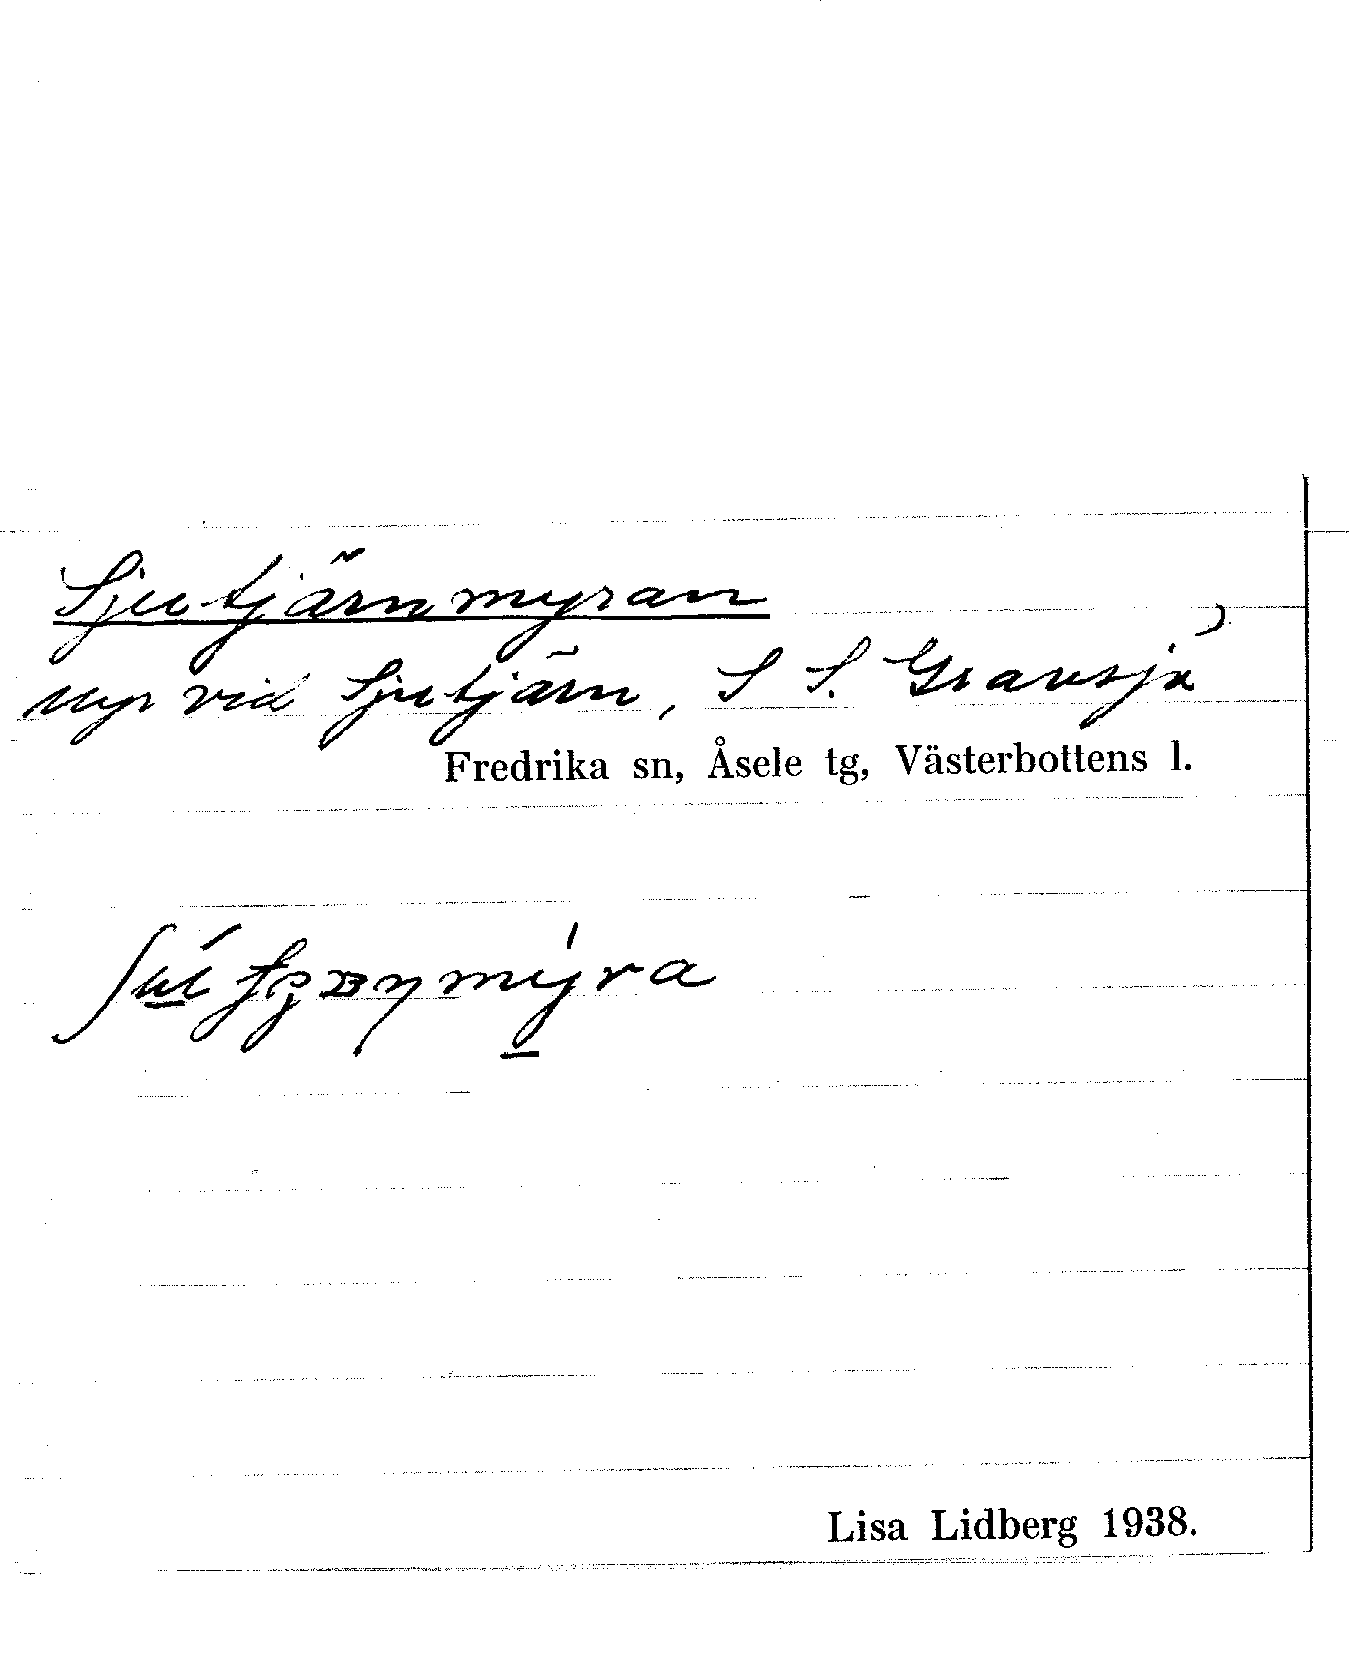 Sjutjärnmyran
myr vid Sjutjärn, S S. Gravsjö
Fredrika sn, Åsele tg, Västerbottens l.
Lisa Lidberg 1938.